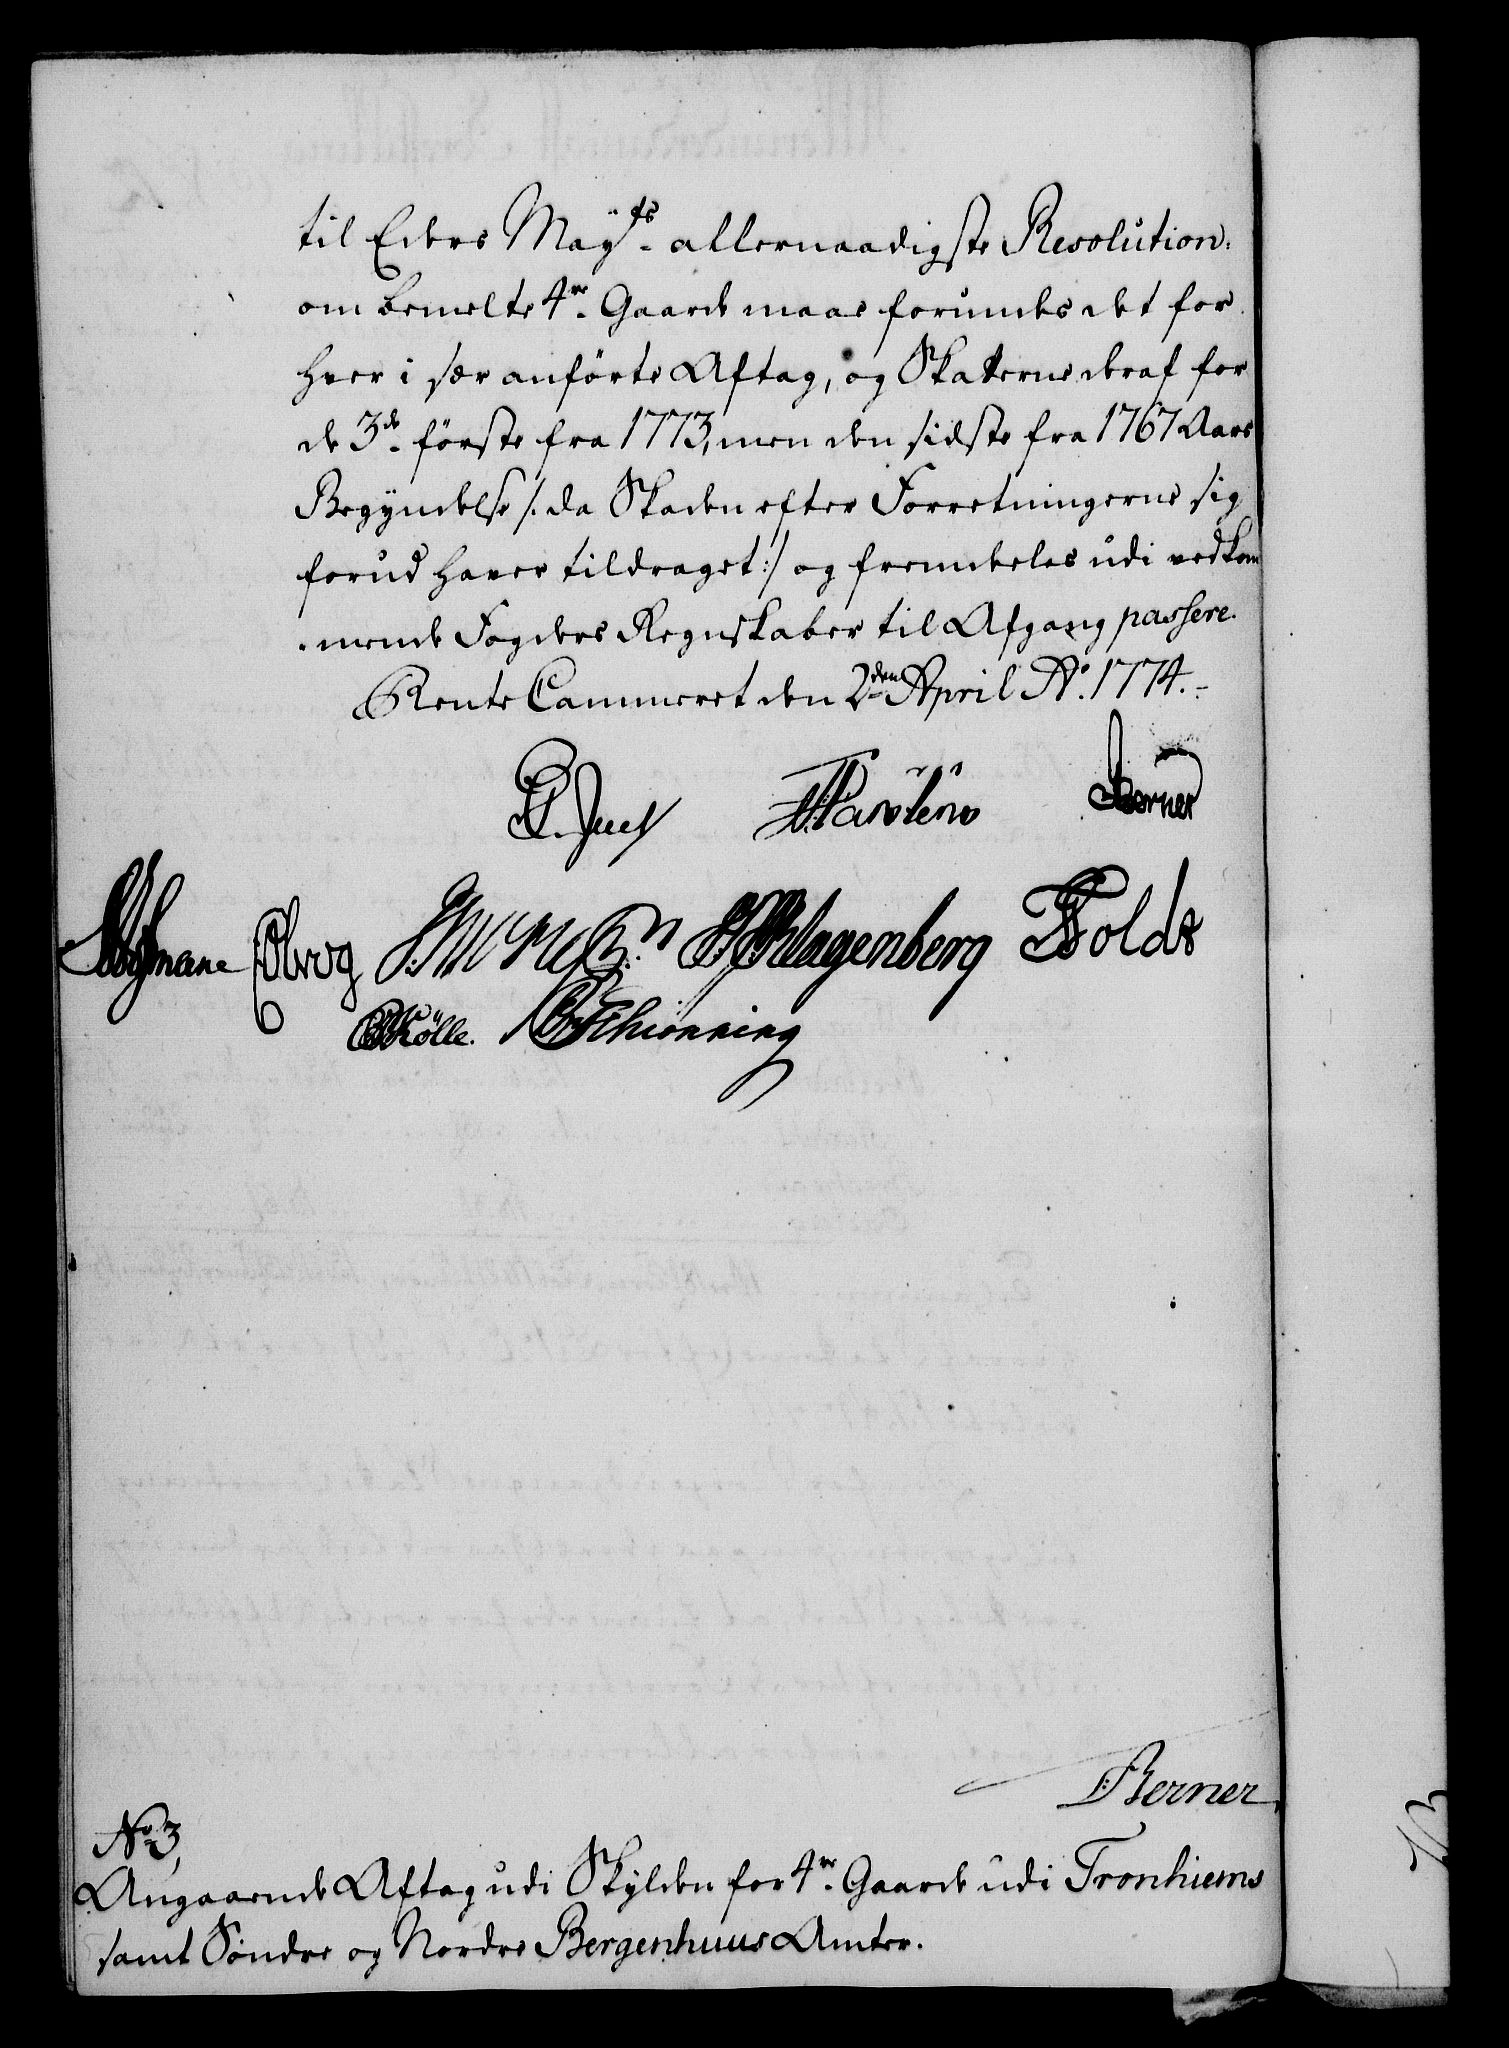 til Eders Mayts. allernaadigste Resolution:
om bemelte 4re. Gaarde maae forundes det for
hver i sær anførte Aftag, og Skatterne deraf for
de 3de. første fra 1773, men den sidste fra 1767 Aars
Begyndelse /: da Skaden efter Forretningerne sig
forud haver tildraget :/ og fremdeles udi vedkom
mende Fogders Regnskaber til Afgang passere.
Rente Cammeret den 2den April Ao. 1774.
Juel Berner
Klagenberg Foldt
Kölle. Schionning
Berner
No. 3,
Angaaende Aftag udi Skylden for 4re. Gaarde udi Tronhiems
samt Søndre og Nordre Bergenhuus Amter.